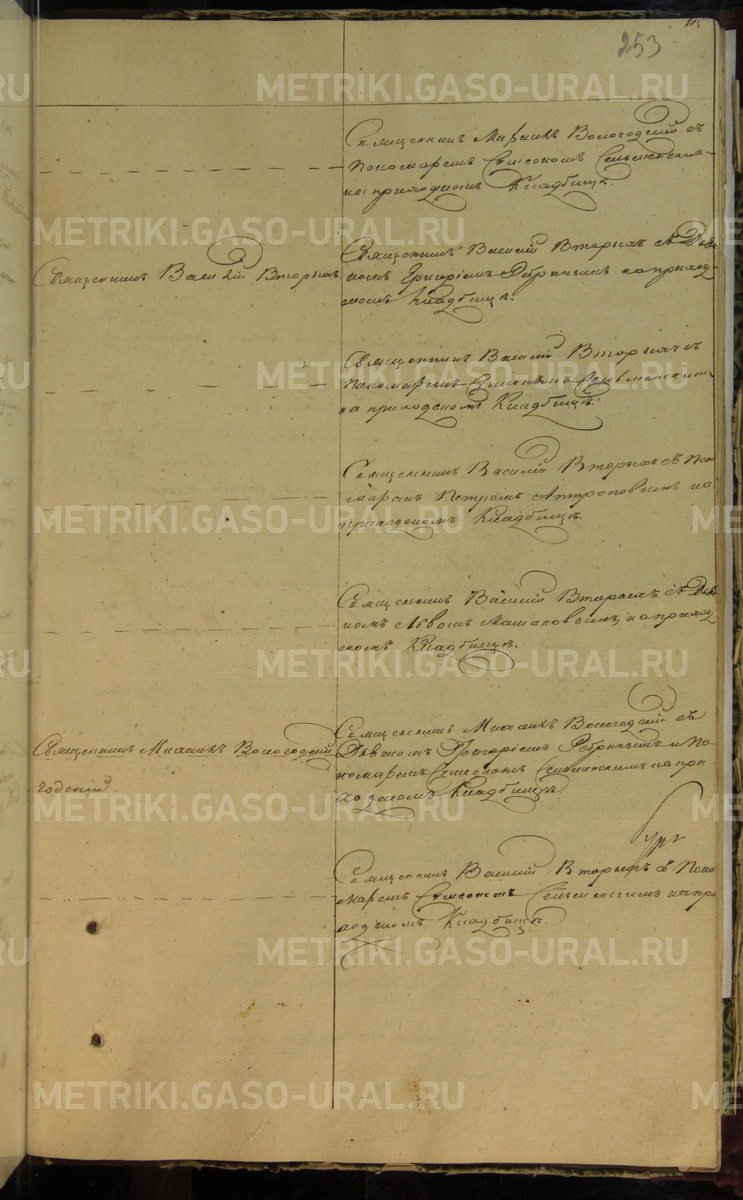 115
253
Священникъ Михаилъ Вологодскій съ
Пономаремъ Симеономъ
на приходскомъ Кладбищѣ.
Священникъ Василій Вторыхъ
Священникъ Василій Вторыхъ съ Діа
кономъ Григоріемъ на приход
скомъ Кладбищѣ.
Священникъ Василій Вторыхъ съ
Пономаремъ
на приходскомъ Кладбищѣ.
Священникъ Василій Вторыхъ съ Поно
маремъ Петромъ Антроповымъ на
приходскомъ Кладбищѣ.
Священникъ Василій Вторыхъ съ Діа
кономъ Львомъ на приход
скомъ Кладбищѣ.
Священникъ Михаилъ Вологодскій
годскій
Священникъ Михаилъ Вологодскій съ
Григоріемъ и По
номаремъ Симеономъ на при
ходскомъ Кладбищѣ.
Священникъ Василій Вторыхъ съ Поно
маремъ Симеономъ на при
ходскомъ Кладбищѣ.
METRIKI.GASO-URAL.RU